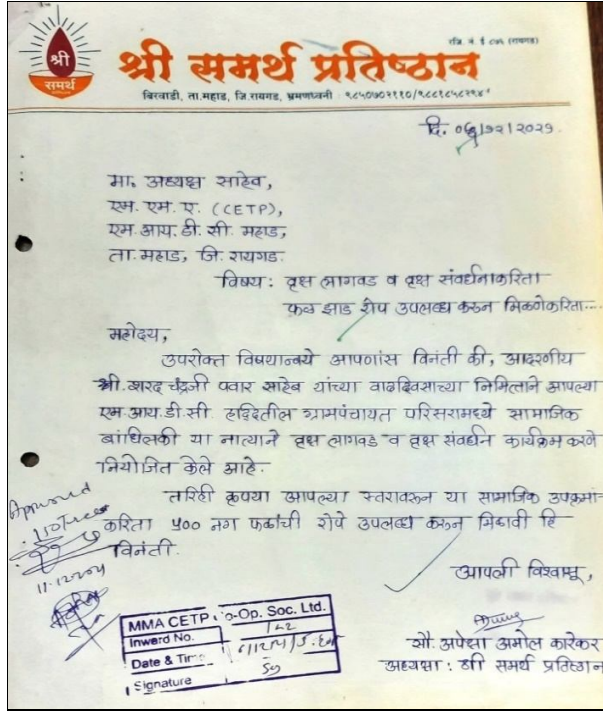 श्री
समर्थ
रजि. नं. ई ८५६ (रायगड)
श्री समर्थ प्रतिष्ठान
बिरवाडी, ता.महाड, जि.रायगड, भ्रमणध्वनी : ९८५०७०२११०/९८८१८५८२१४
दि. ०६/१२/२०२१.
मा. अध्यक्ष साहेब,
एम. एम. ए. (CETP),
एम. आय. डी. सी. महाड,
ता. महाड, जि. रायगड.
विषय : वृक्ष लागवड व वृक्ष संवर्धनाकरिता
फळ झाड रोप उपलब्ध करुन मिळणेकरिता....
महोदय,
उपरोक्त विषयान्वये आपणांस विनंती की, आदरणीय
श्री. शरद चंद्रजी पवार साहेब यांच्या वाढदिवसाच्या निमित्ताने आपल्या
एम. आय. डी. सी. हद्दितील ग्रामपंचायत परिसरामध्ये सामाजिक
बांधिलकी या नात्याने वृक्ष लागवड व वृक्ष संवर्धन कार्यक्रम करणे
नियोजित केले आहे.
तरिही कृपया आपल्या स्तरावरुन या सामाजिक उपक्रमां-
करिता ५०० नग फळांची रोपे उपलब्ध करुन मिळावी हि
विनंती.
Approved
110 Trees
आपली विश्वासू,
सौ. अपेक्षा अमोल कारेकर
अध्यक्षा : श्री समर्थ प्रतिष्ठान
MMA CETP Co-Op. Soc. Ltd.
Inward No. 142
Date & Time
Signature